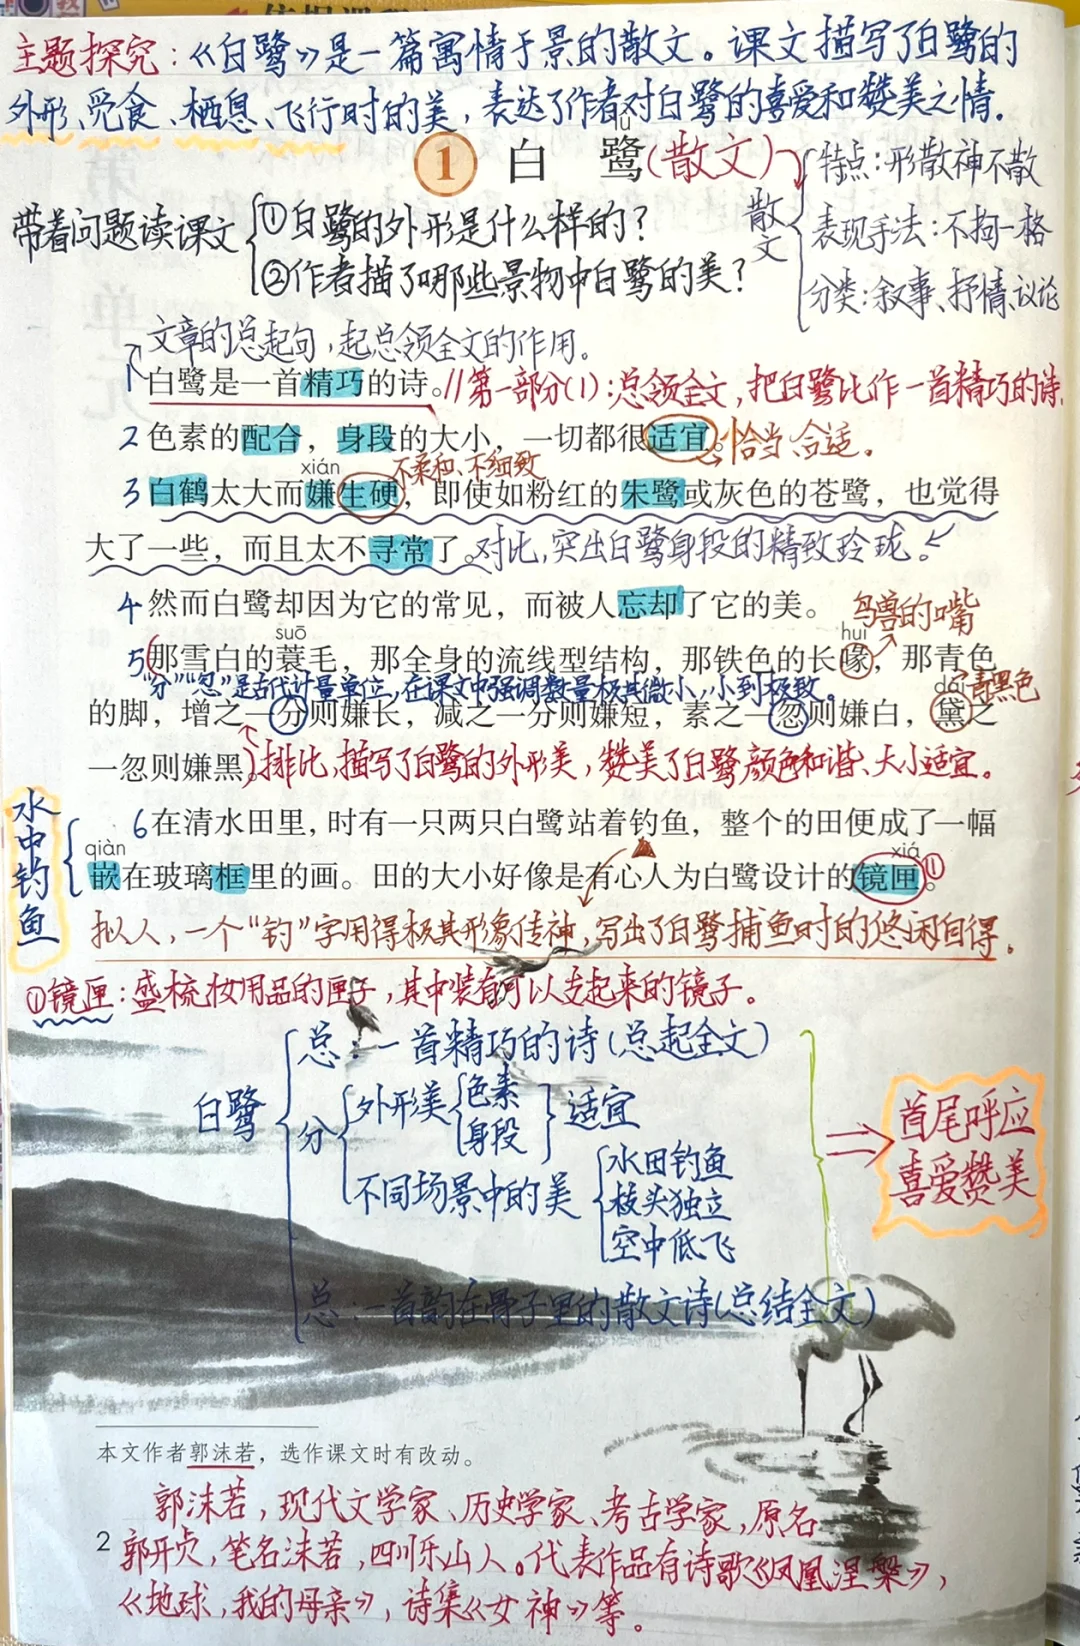 主题探究：《白鹭》是一篇寓情于景的散文。课文描写了白鹭的
外形、觅食、栖息、飞行时的美，表达了作者对白鹭的喜爱和赞美之情.
lù
1 白 鹭(散文)
散文
特点：形散神不散
表现手法：不拘一格
分类：叙事、抒情、议论
带着问题读课文
①白鹭的外形是什么样的？
②作者描了哪些景物中白鹭的美？
文章的总起句，起总领全文的作用。
1 白鹭是一首精巧的诗。//第一部分(1)：总领全文，把白鹭比作一首精巧的诗.
2 色素的配合，身段的大小，一切都很适宜。恰当、合适。
xián 不柔和、不细致
3 白鹤太大而嫌生硬，即使如粉红的朱鹭或灰色的苍鹭，也觉得
大了一些，而且太不寻常了。对比，突出白鹭身段的精致玲珑。
4 然而白鹭却因为它的常见，而被人忘却了它的美。 鸟兽的嘴
suō huì
5 那雪白的蓑毛，那全身的流线型结构，那铁色的长喙，那青色
“分”“忽”是古代计量单位，在课文中强调数量极其微小，小到极致。 dài 青黑色
的脚，增之一分则嫌长，减之一分则嫌短，素之一忽则嫌白，黛之
一忽则嫌黑。排比，描写了白鹭的外形美，赞美了白鹭颜色和谐、大小适宜。
水中钓鱼
6 在清水田里，时有一只两只白鹭站着钓鱼，整个的田便成了一幅
qiàn xiá
嵌在玻璃框里的画。田的大小好像是有心人为白鹭设计的镜匣①。
拟人，一个“钓”字用得极其形象传神，写出了白鹭捕鱼时的悠闲自得.
①镜匣：盛梳妆用品的匣子，其中装有可以支起来的镜子。
白鹭
总：一首精巧的诗(总起全文)
分
外形美
色素
身段
适宜
不同场景中的美
水田钓鱼
枝头独立
空中低飞
总：一首韵在骨子里的散文诗(总结全文)
首尾呼应
喜爱赞美
本文作者郭沫若，选作课文时有改动。
郭沫若，现代文学家、历史学家、考古学家，原名
2
郭开贞，笔名沫若，四川乐山人。代表作品有诗歌《凤凰涅槃》，
《地球，我的母亲》，诗集《女神》等。